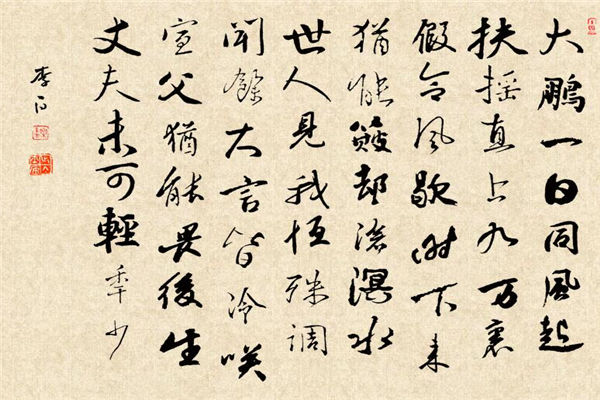 大鵬一日同風起
扶摇直上九万裏
假令風歇时下来
猶能簸却滄溟水
世人見我恒殊调
聞餘大言皆冷咲
宣父猶能畏後生
丈夫未可輕年少
李